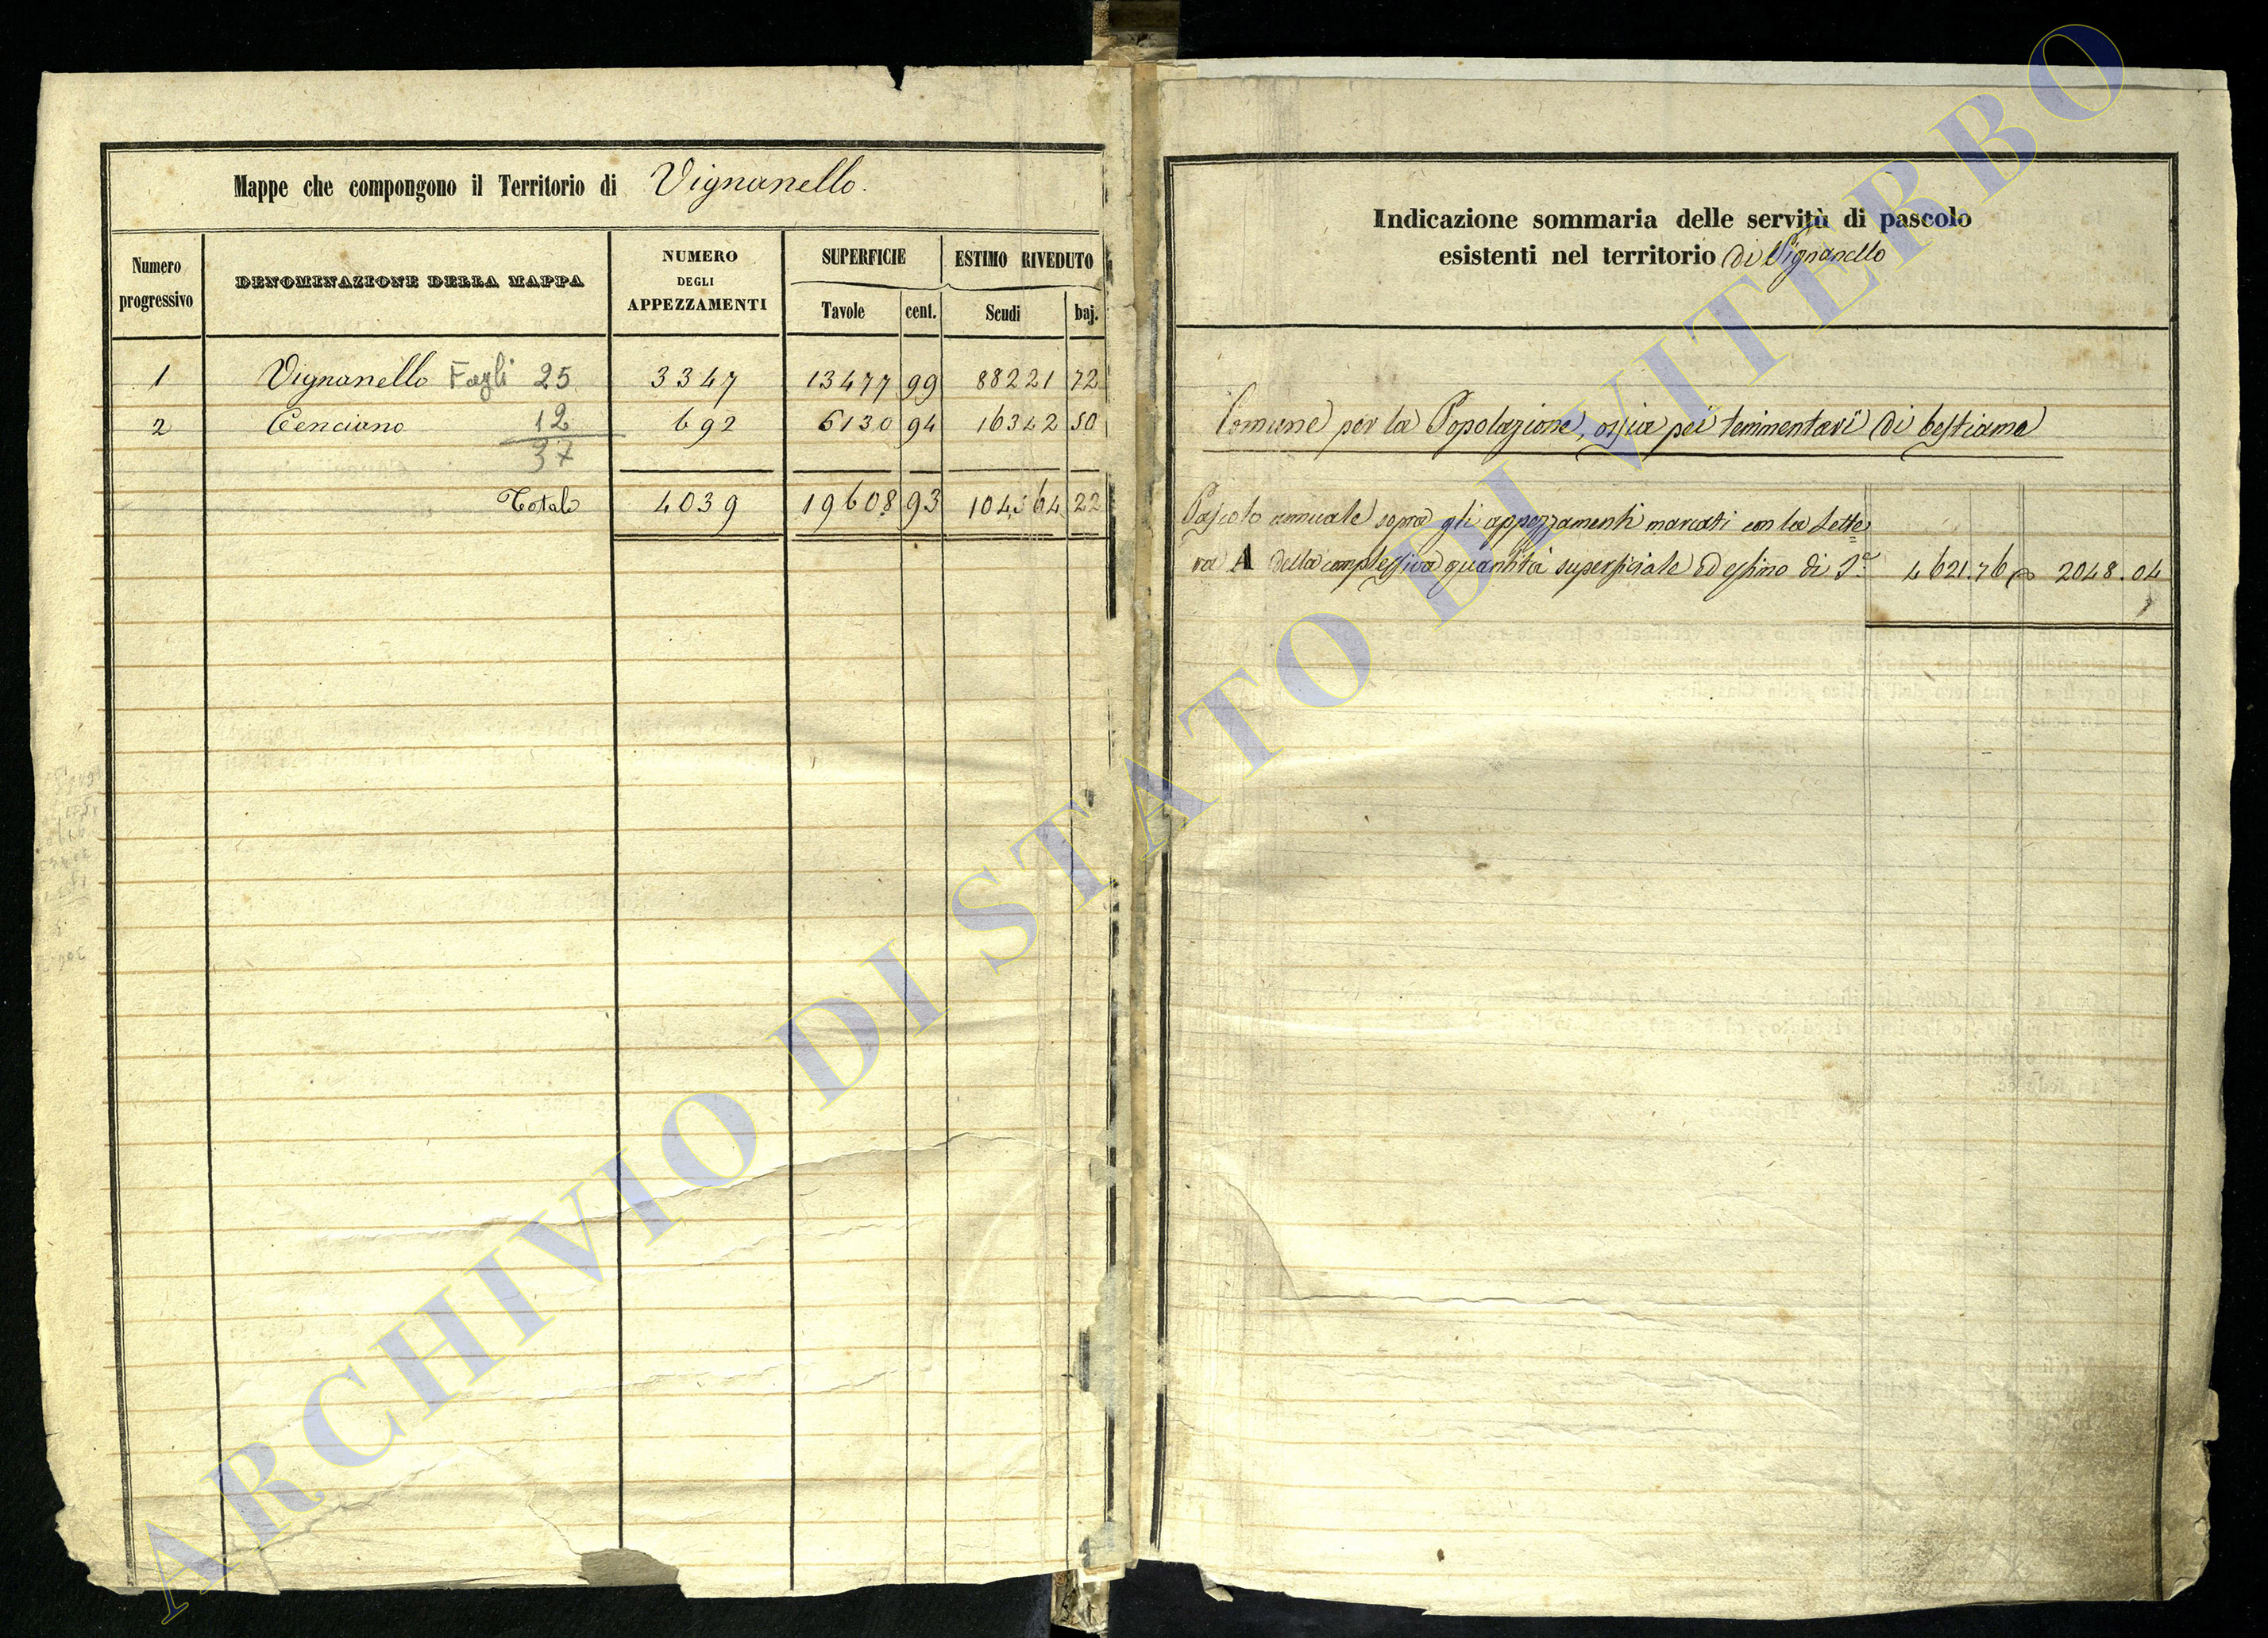 Mappe che compongono il Territorio di Vignanello.
Numero progressivo
DENOMINAZIONE DELLA MAPPA
NUMERO DEGLI APPEZZAMENTI
SUPERFICIE
Tavole cent.
ESTIMO RIVEDUTO
Scudi baj.
1 Vignanello Fogli 25 3347 13477 99 88221 72
2 Cenciano 12 692 6130 94 16342 50
37
Totale 4039 19608 93 104564 22
Indicazione sommaria delle servitù di pascolo
esistenti nel territorio di Vignanello
Comune per la Popolazione, ossia pei tenimentari di bestiame
Pascolo annuale sopra gli appezzamenti marcati con la Lette=
ra A della complessiva quantità superficiale ed estimo di 4621.76 2048.04
ARCHIVIO DI STATO DI VITERBO